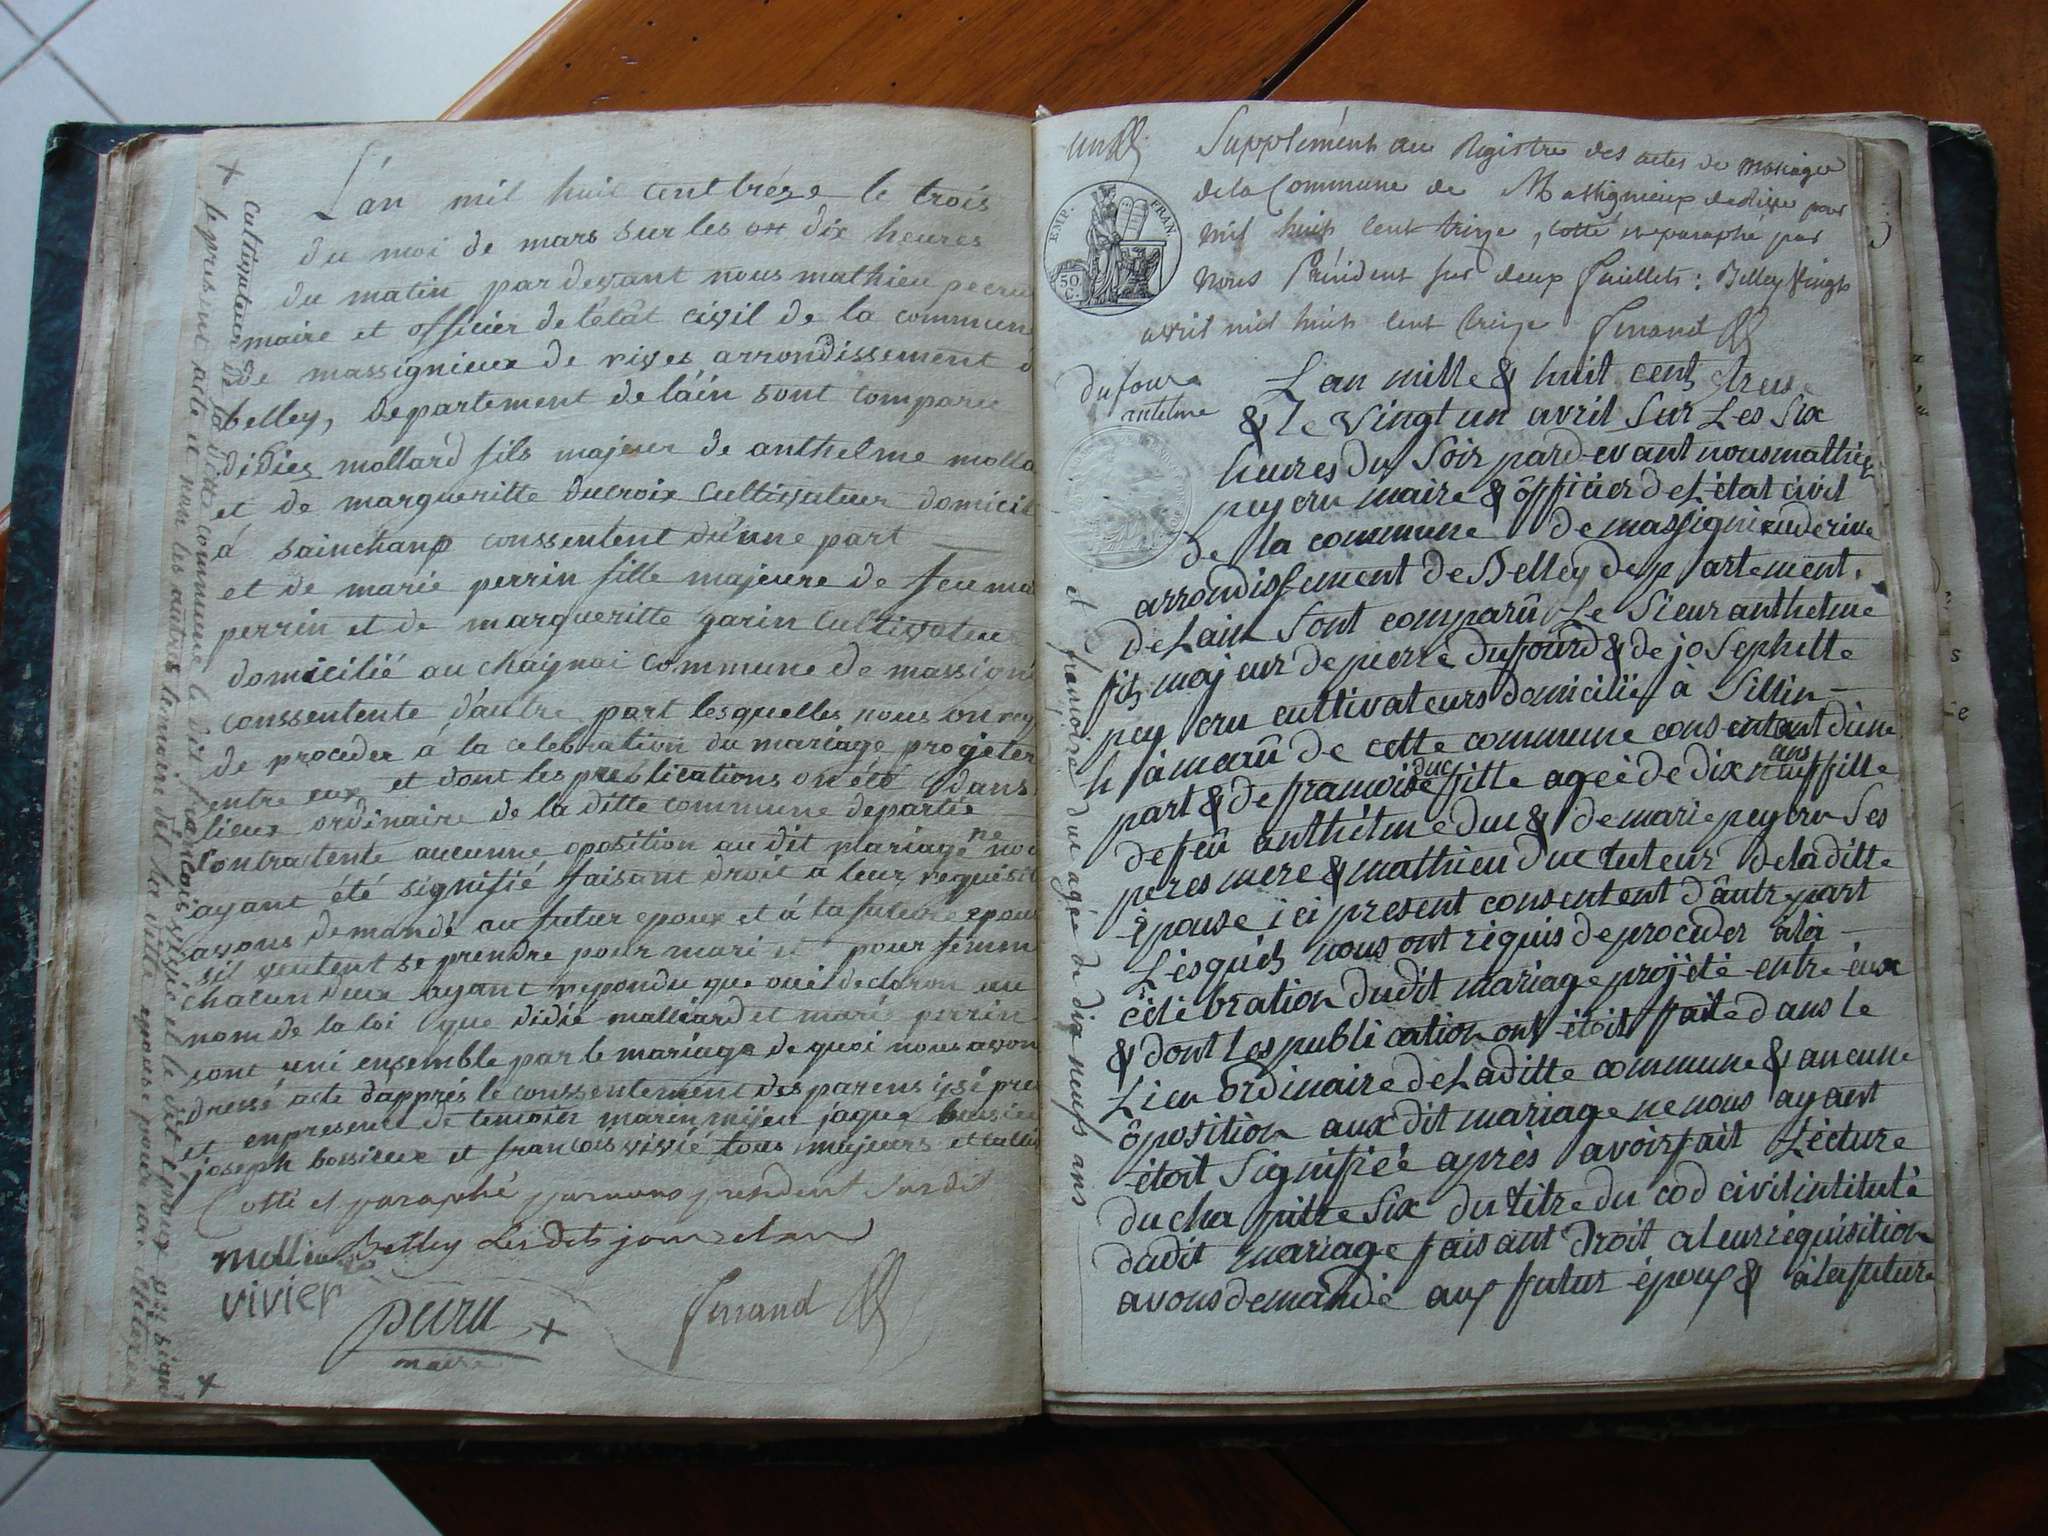 L'an mil huit cent treze le trois
du moi de mars sur les dix heures
du matin par devant nous mathieu pecru
maire et officier de l'état civil de la commun
de massignieux de rives arrondissement d
belley, departement de l'áin sont comparu
didier mollard fils majeur de anthelme molla
et de margueritte ducroix cultivateur domicil
á sainchanp conssentent d'une part
et de marie perrin fille majeure de feu ma
perrin et de margueritte garin Cultivateu
domicilié au chaignai commune de massigni
conssentente d'autre part lesquelles nous on req
de proceder á la celebration du mariage progeter
entre eux et dont les publications on été dans
lieux ordinaire de la ditte commune departie
Contractente aucunne oposition au dit mariage ne nou
ayant été signifié faisant droit a leur requisit
avons demandé au futur epoux et á la future epous
sil veulent se prendre pour mari et pour femm
chacun deux ayant repondu que oui declaron au
nom de la loi que didié malliard et marie perrin
sont uni ensemble par le mariage de quoi nous avon
dressé acte d'apprés le conssentement des parens isi pre
et en presence de temoins marin mijeu jaque bossieu
joseph bossieux et francois vivié tous majeurs et culti
Cotté et paraphé par nous president Sur dit
Belley Les dits jour et an
vivier
pecru
maire
Ferrand
+ cultivateur de la ditte commune le dit francois vivié et le dit epoux ont signé
le present acte et non les autres temoin dit la ditte epouse pour etre illiterer +
un
EMP. FRAN.
50 C.
Supplément au Registre des actes de Mariage
de la Commune de Massignieux de Rives pour
mil huit Cent treize, Cotté et paraphé par
Nous Président sur deux feuillets: Belley Vingt
avril mil huit Cent treize Ferrand
dufour
antelme
L'an mille & huit cent treise
& Le Vingt un avril Sur Les Six
heures du Soir pard-evant nous mathieu
peycru maire & ôfficier de L'état civil
de la commune de massignieuderive
arrondissement de Belley departement
de Lain Sont comparû Le Sieur anthelme
fils majeur de pierre dufourd & de josephette
peycru cultivateurs domicilié à Sillin
hâmeaû de cette commune consentant d'une
part & de framoise duc fille ageé de dix neuf ans fille
de feû anthélme duc & de marie peycru Ses
peres mere & mathieu duc tuteur de la ditte
épouse ici présent consentent d'âutre part
Lesquels nous ont riquis de proceder à la
célébration du dit mariage projété entre éux
& dont Les publication ont étoit faite dans le
Lieu Ordinaire de La ditte commune & aucune
ôposition aux dit mariage ne nous ayant
étoit Signifieé après avoir fait Lécture
du cha pittre Six du titre du cod civil intitulé
dudit mariage faisant droit a leur réquisition
avons demandé aux futur époux & à la future
et framoise duc agée de dix neuf ans